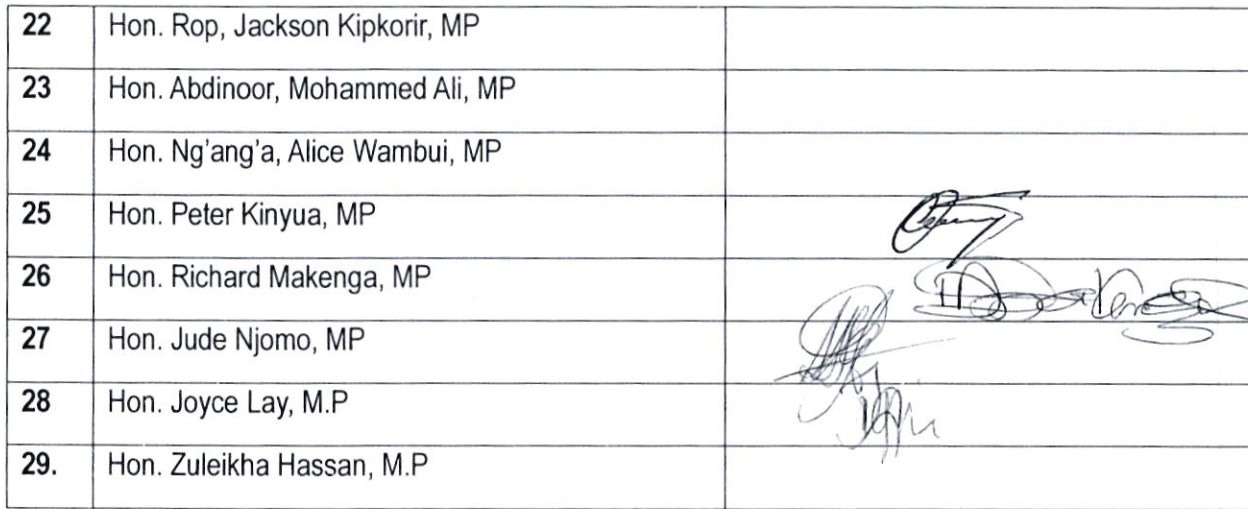 22 Hon. Rop, Jackson Kipkorir, MP
23 Hon. Abdinoor, Mohammed Ali, MP
24 Hon. Ng’ang’a, Alice Wambui, MP
25 Hon. Peter Kinyua, MP
26 Hon. Richard Makenga, MP
27 Hon. Jude Njomo, MP
28 Hon. Joyce Lay, M.P
29. Hon. Zuleikha Hassan, M.P